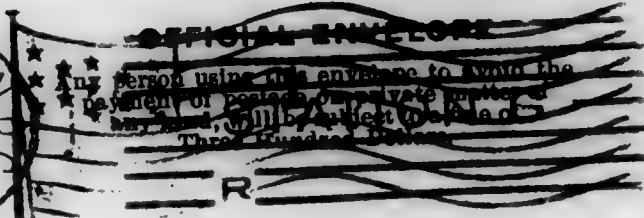 OFFICIAL ENVELOPE
Any person using this envelope to avoid the
payment of postage on private matter of
any kind, will be subject to a fine of
Three Hundred Dollars
R